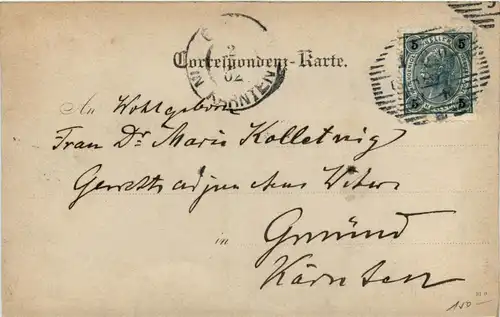 5 5
Correspondenz-Karte.
2
02
KÄRNTEN
5 5
An Wohlgeboren
Frau Dr Marie Kolletnig
Gerichtsadjunctens Witwe
in Gmünd
Kärnten
150-